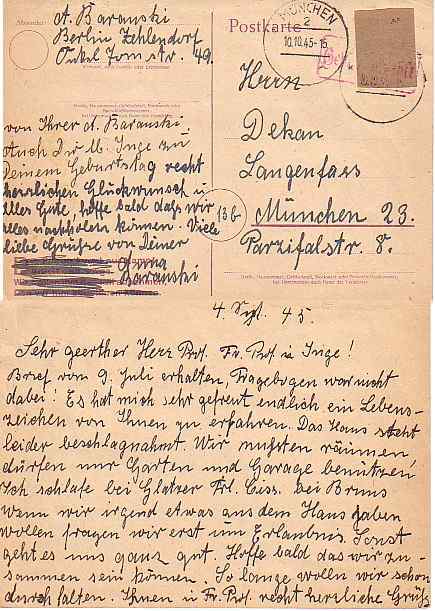 Absender:
A. Baranski
Berlin Zehlendorf
Onkel Tom str. 49.
Postkarte
MÜNCHEN
2
10.10.45-15
Herrn
Dekan
Langenfass
13b
München 23.
Parzifalstr. 8.
von Ihrer A. Baranski
Auch Inge zu
Deinem Geburtstag recht
herzlichen Glückwunsch u
alles Gute, hoffe bald dass wir
alles nachholen können. Viele
liebe Grüsse von Deiner
Anna
Baranski
4. Sept. 45.
Sehr geerther Herr Prof. Fr. Prof. u Inge!
Brief vom 9. Juli erhalten, Fragebogen war nicht
dabei! Es hat mich sehr gefreut endlich ein Lebens-
zeichen von Ihnen zu erfahren. Das Haus steht
leider beschlagnahmt. Wir mussten räumen
dürfen nur Garten und Garage benützen
Ich schlafe bei Glatzer Frl. Ciss. bei Bruns
wenn wir irgend etwas aus dem Haus haben
wollen fragen wir erst um Erlaubnis. Sonst
geht es uns ganz gut. Hoffe bald das wir zu-
sammen sein können. So lange wollen wir schon
durch falten. Ihnen u Fr. Prof. recht herzliche Grüss